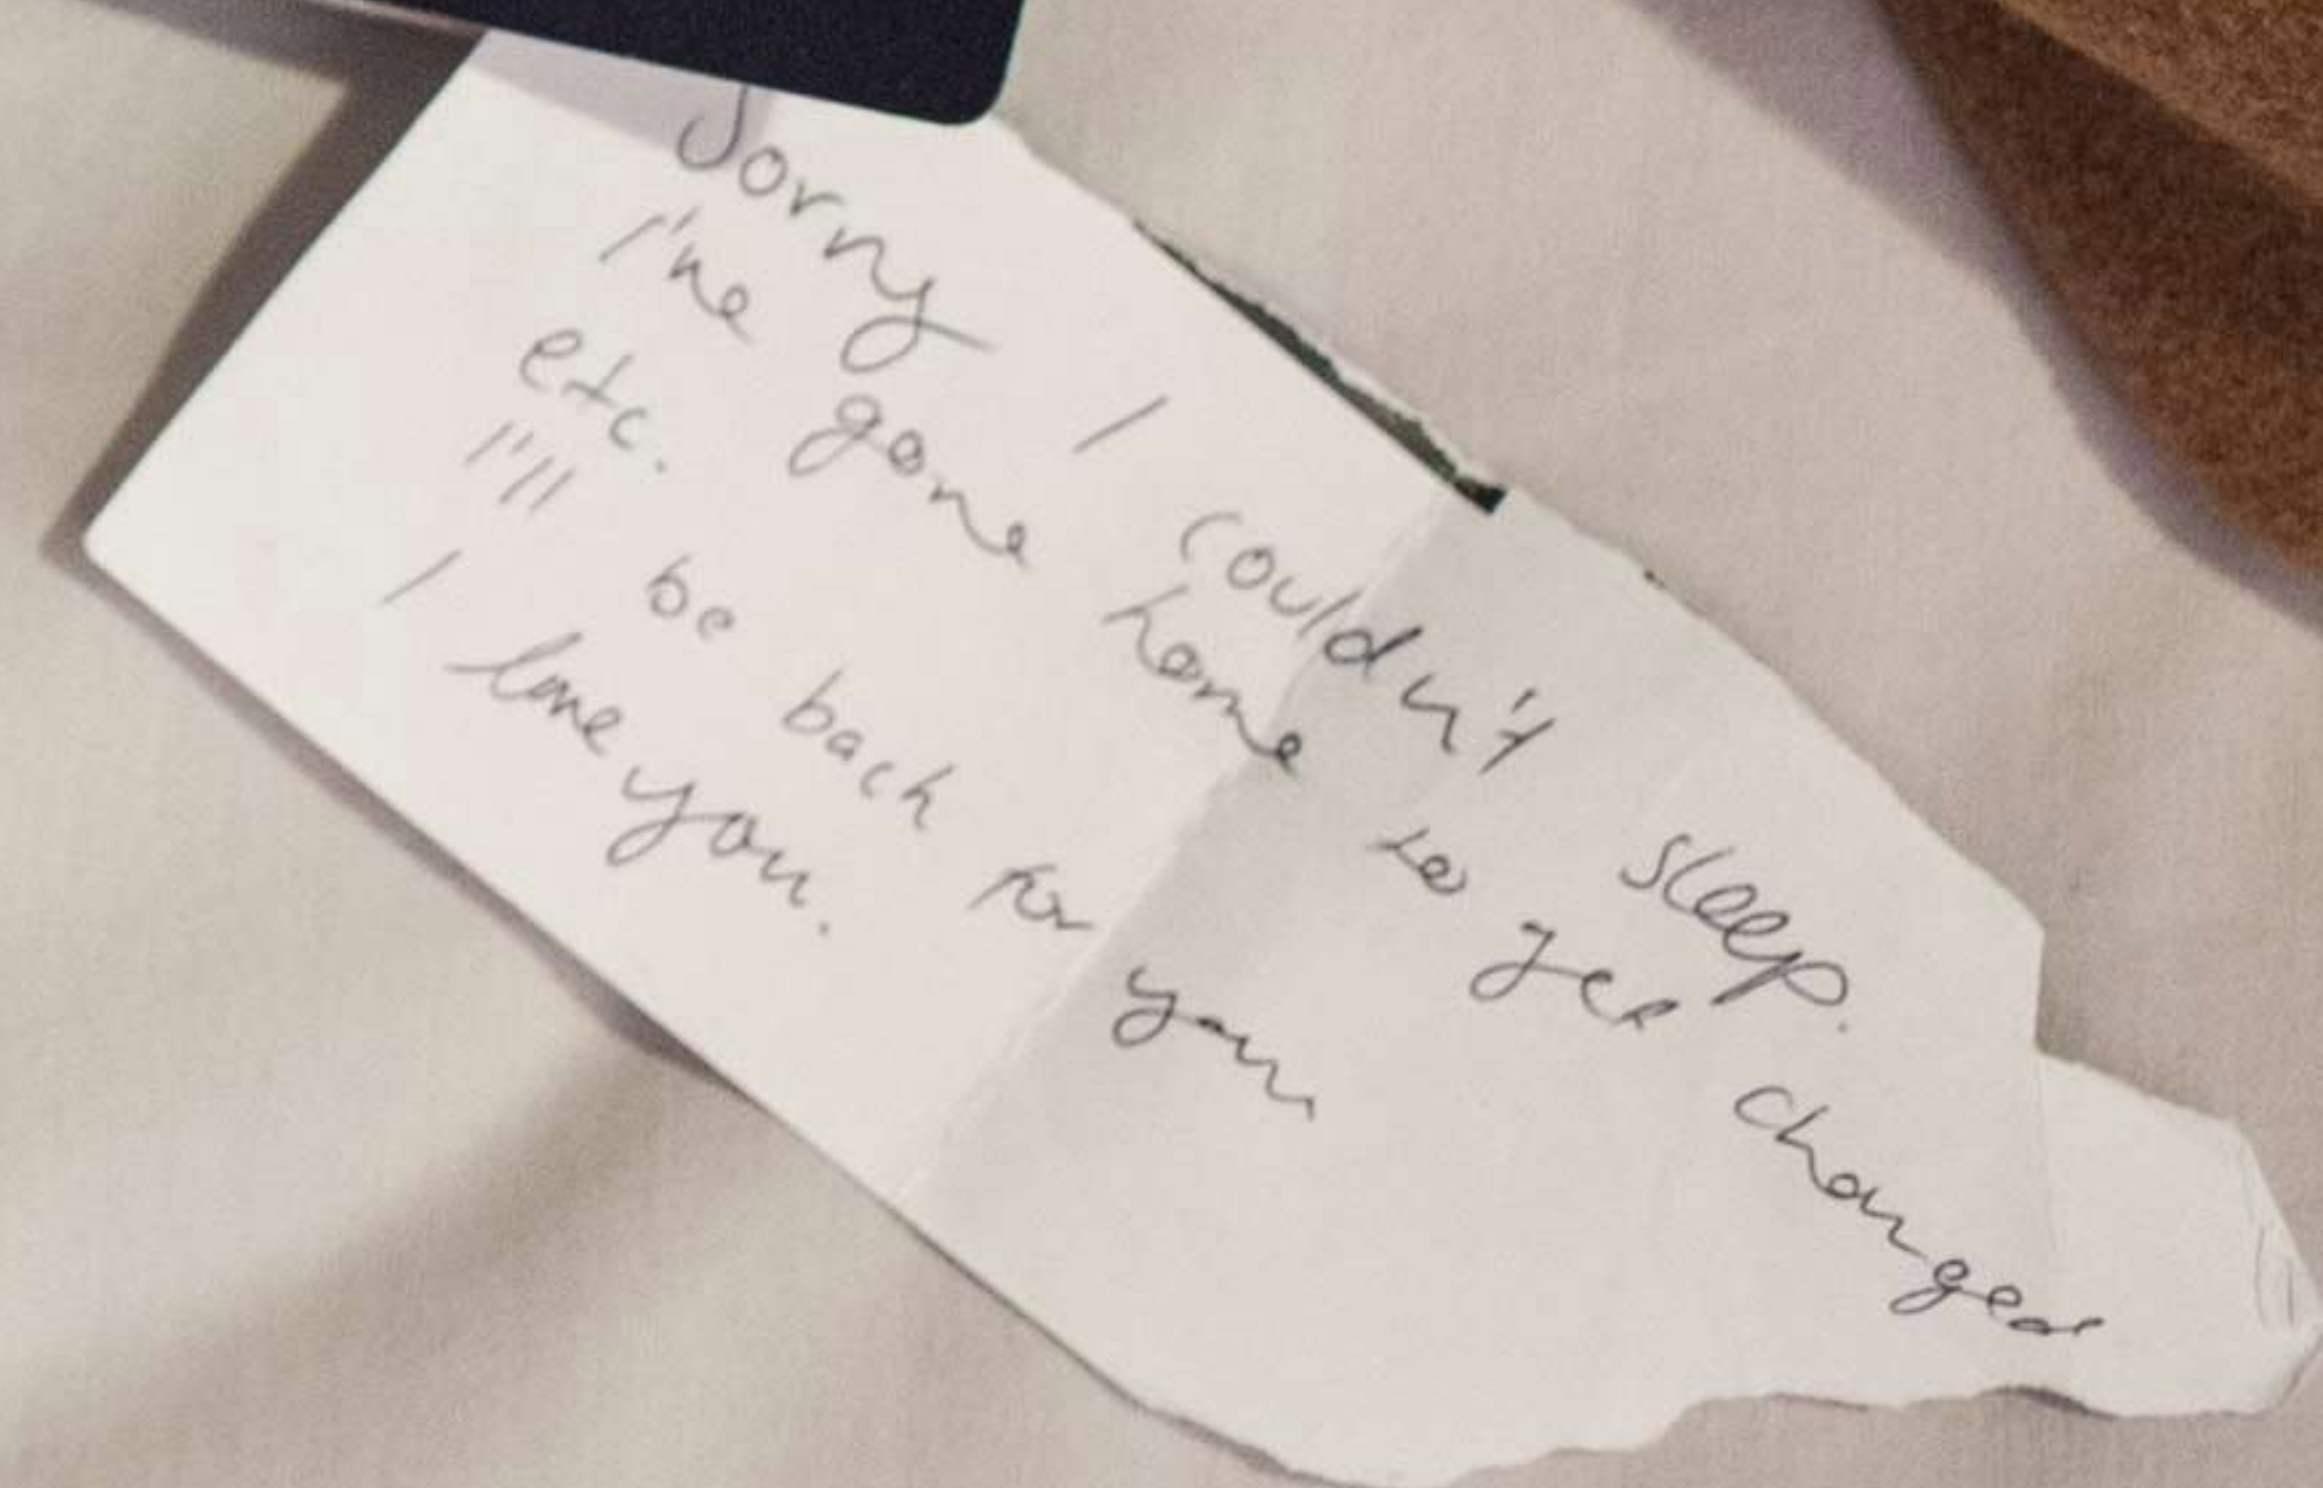 Sorry I couldn't sleep.
I've gone home to get changed
etc.
I'll be back for you
I love you.